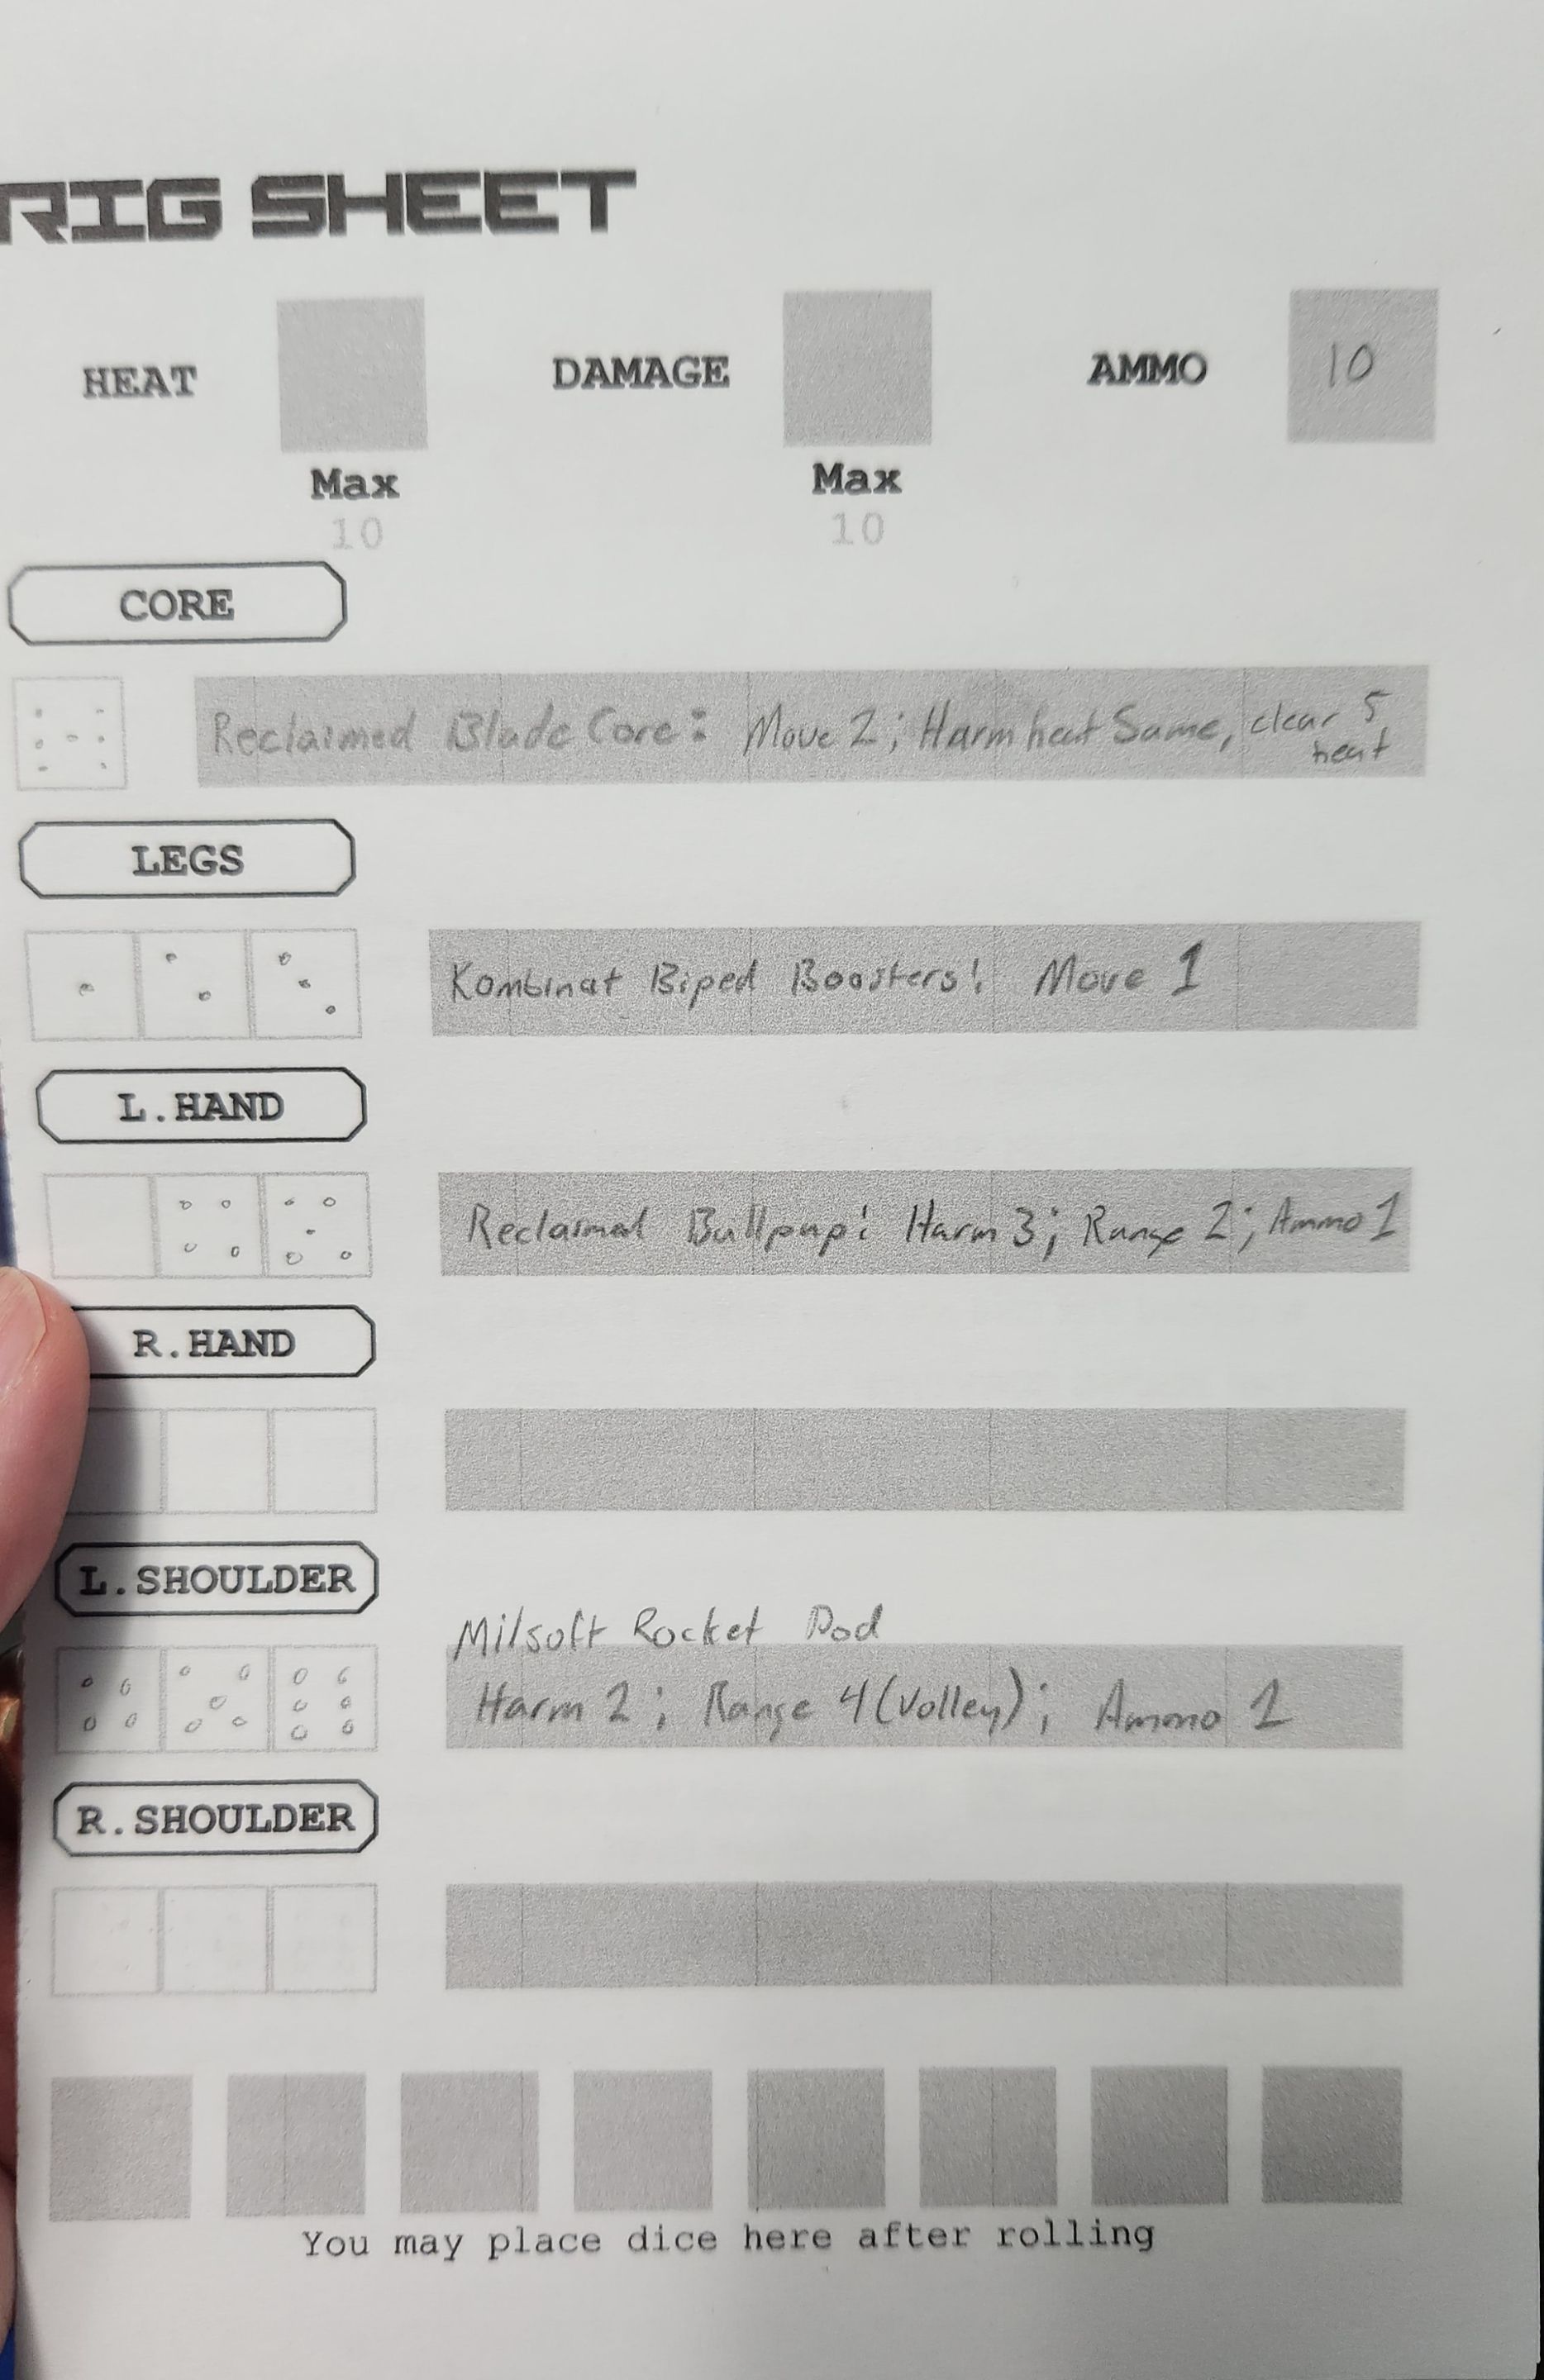 RIG SHEET
HEAT DAMAGE AMMO 10
Max Max
10 10
CORE
Reclaimed Blade Core: Move 2; Harm heat Same, clear 5
heat
LEGS
Kombinat Biped Boosters: Move 1
L.HAND
Reclaimed Bullpup: Harm 3; Range 2; Ammo 1
R.HAND
L.SHOULDER
Milsoft Rocket Pod
Harm 2; Range 4 (Volley); Ammo 1
R.SHOULDER
You may place dice here after rolling